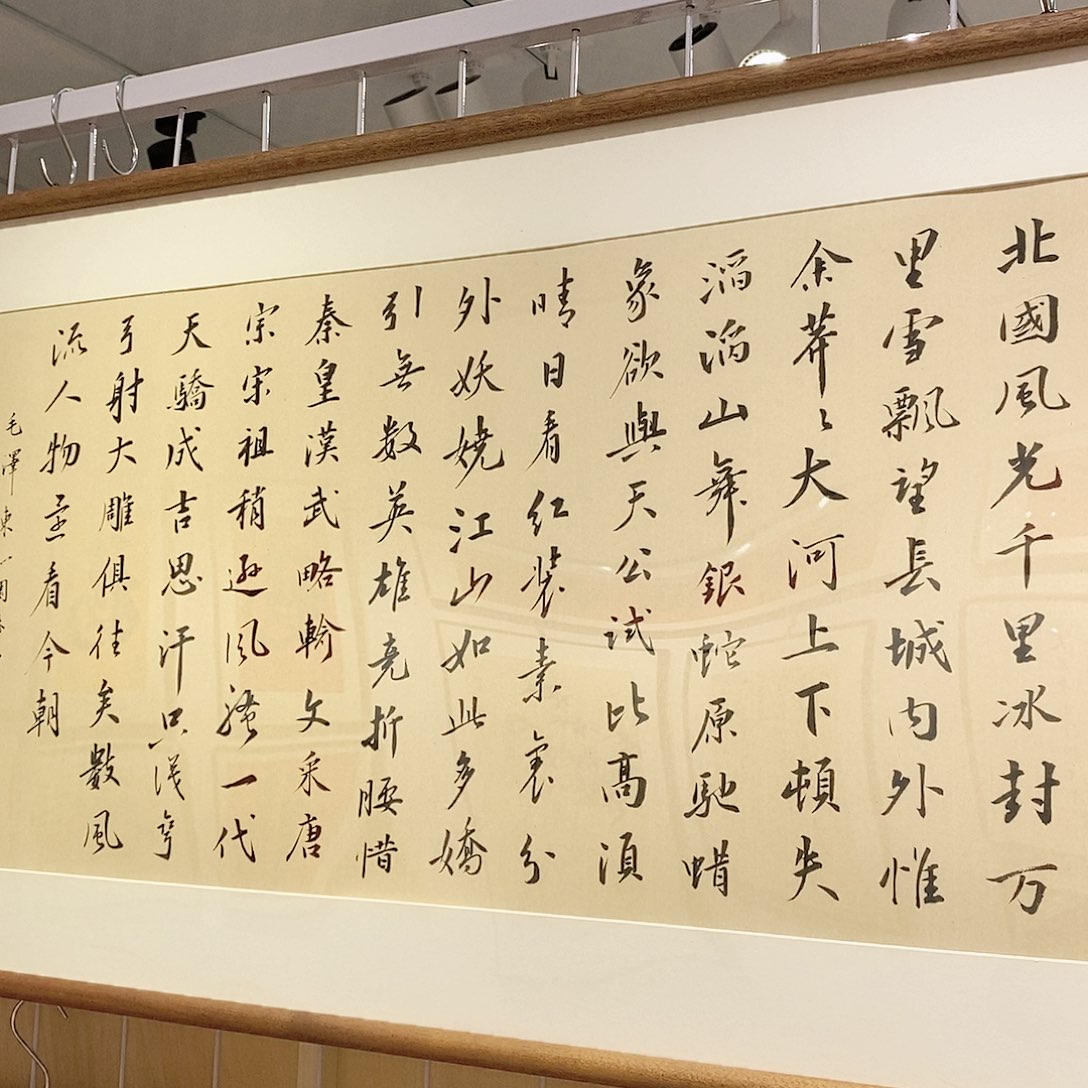 北國風光千里冰封万
里雪飄望長城内外惟
余莽〻大河上下頓失
滔滔山舞銀蛇原馳蜡
象欲與天公試比高湏
晴日看红装素裹分
外妖嬈江山如此多嬌
引無数英雄竞折腰惜
秦皇漢武略輸文采唐
宗宋祖稍逊风骚一代
天驕成吉思汗只识弯
弓射大雕俱往矣數風
流人物还看今朝
毛澤東